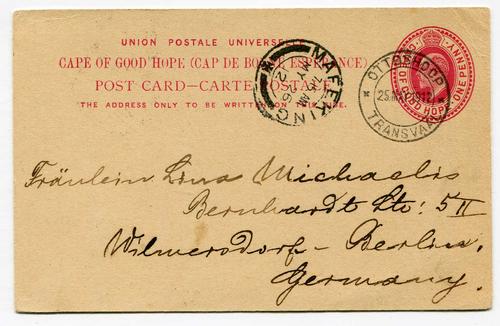 UNION POSTALE UNIVERSELLE
CAPE OF GOOD HOPE (CAP DE BONNE ESPERANCE)
POST CARD—CARTE POSTALE
THE ADDRESS ONLY TO BE WRITTEN ON THIS SIDE.
MAFEKING
MY 26
12
OTTOSHOOP
25 1912
TRANSVAAL
OF GOOD HOPE
ONE PENNY
Fräulein Lina Michaelis
Bernhardt Str: 5 II
Wilmersdorf - Berlin.
Germany.